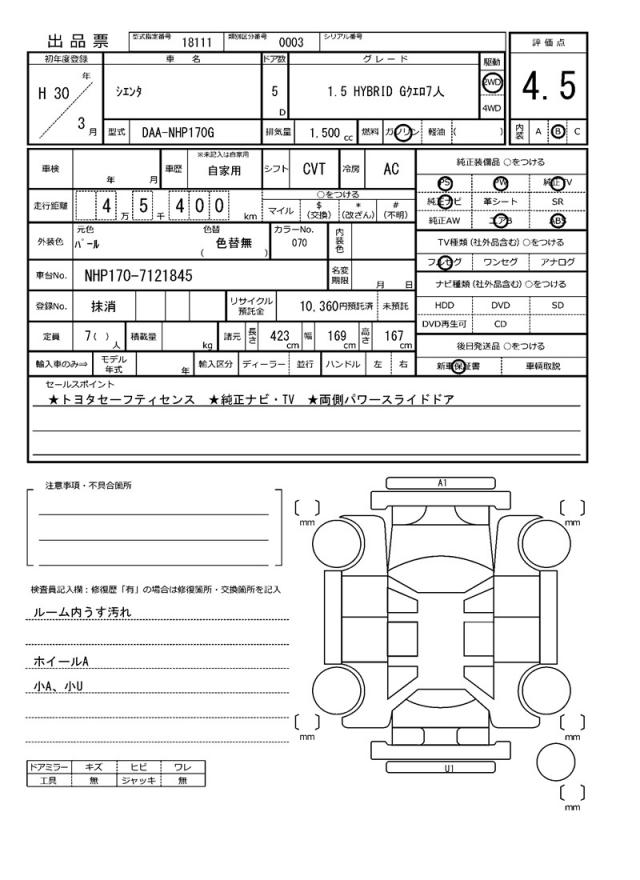 出品票 型式指定番号 18111 類別区分番号 0003 シリアル番号
評価点
初年度登録 車名 ドア数 グレード 駆動
H 30 年 3 月
シエンタ
5 D
1.5 HYBRID Gクエロ7人
2WD
4WD
4.5
型式 DAA-NHP170G 排気量 1.500 cc 燃料 ガソリン 軽油 ( )
内装 A B C
車検 年 月 車歴 ※未記入は自家用 自家用 シフト CVT 冷房 AC
純正装備品 ○をつける
PS PW 純正TV
走行距離 4 万 5 千 4 0 0 km
○をつける
マイル $(交換) *(改ざん) #(不明)
純正ナビ 革シート SR
純正AW エアB ABS
外装色 元色 パール 色替 色替無 ( ) カラーNo. 070 内装色
TV種類(社外品含む)○をつける
フルセグ ワンセグ アナログ
車台No. NHP170-7121845 名変期限 月 日
ナビ種類(社外品含む)○をつける
登録No. 抹消 リサイクル預託金 10,360円預託済 未預託
HDD DVD SD
DVD再生可 CD
定員 7( )人 積載量 kg 諸元 長さ 423 cm 幅 169 cm 高さ 167 cm
後日発送品 ○をつける
輸入車のみ⇒ モデル年式 年 輸入区分 ディーラー 並行 ハンドル 左 右
新車保証書 車輌取説
セールスポイント
★トヨタセーフティセンス ★純正ナビ・TV ★両側パワースライドドア
注意事項・不具合箇所
A1
mm
mm
検査員記入欄:修復歴「有」の場合は修復箇所・交換箇所を記入
ルーム内うす汚れ
ホイールA
小A、小U
mm
mm
U1
ドアミラー キズ ヒビ ワレ
工具 無 ジャッキ 無
mm